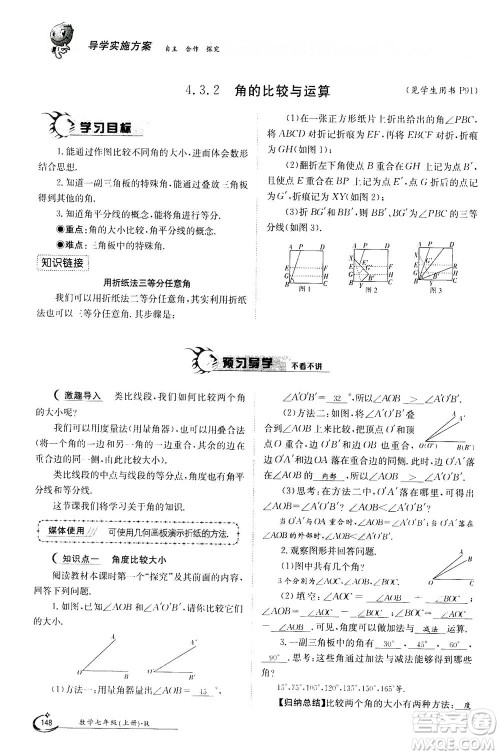 导学实施方案 自主 合作 探究
4.3.2 角的比较与运算 (见学生用书 P91)
学习目标
1.能通过作图比较不同角的大小,进而体会数形
结合思想.
2.知道一副三角板的特殊角,能够运用三角板的
特殊角.
3.知道角平分线的概念,能够运用角平分线的概念.
●重点:角的大小比较,角平分线的概念.
●难点:三角板中的特殊角.
知识链接
用折纸法三等分任意角
我们可以用折纸法二等分任意角,我们同样可以
用折纸法三等分任意角.
(1)在一张正方形纸片上折出给出的角∠PBC,
将ABCD对折,折痕记为EF,再将EBCF对折,折痕
记为GH(如图1).
(2)翻折左下角使B点与GH上的点B′重合且E
点与PB上的点E′重合,同时折叠后G点的对应点记
为G′,折痕记为XY(如图2).
(3)折BG′和BB′,那么BG′和BB′为∠PBC的三等
分线(如图3).
图1 图2 图3
预习导学 不看不讲
激趣导入 类比线段,我们如何比较两个角的
大小呢?
我们可以用度量法(用量角器),我们也可以把它
们的一条边叠合在一起(两个角的另一边在重合边的
同侧),通过观察另一条边的位置来比较两个角的大小.
类比线段的中点与线段的等分点,我们还有角平
分线与角的等分线.
这节课我们将学习关于角的知识.
媒体使用 可使用几何画板演示折纸的方法.
知识点一 角度比较大小
阅读教材本课时第一个“探究”及其前面的内容,
回答下列问题.
1.如图,已知∠AOB和∠A′O′B′,比较它们的大小.
(1)方法一:如图,测量得∠AOB= 45 °,
∠A′O′B′= °,所以∠AOB
∠A′O′B′.
(2)方法二:如图,将∠AOB和
∠A′O′B′叠合比较,顶点O′和O重
合,边O′B′和OB重合,边OA、O′A′
落在重合边的同侧.O′A′落在
∠AOB的 内部 ,所以∠AOB > ∠A′O′B′.
(3)思考:在方法二中,若O′A′落在∠AOB的外部,
则∠AOB < ∠A′O′B′;若O′A′与OA重合,则
∠AOB = ∠A′O′B′.
2.观察图形并回答问题.
(1)图中共有几个角?
3个,分别为∠AOC,∠AOB,∠BOC.
(2)填空:∠AOC=∠AOB+ ∠BOC ,
∠AOB= ∠AOC - ∠BOC .
可以看出,角度可以做加法与 减法 运算.
3.一副三角板中的角有 30 °, 45 °, 60 °,
90 °.思考:利用一副三角板的角度做加减法运
算,还可以得到哪些角?
【归纳总结】比较两个角的大小的方法: 度
148 数学七年级(上册)·R